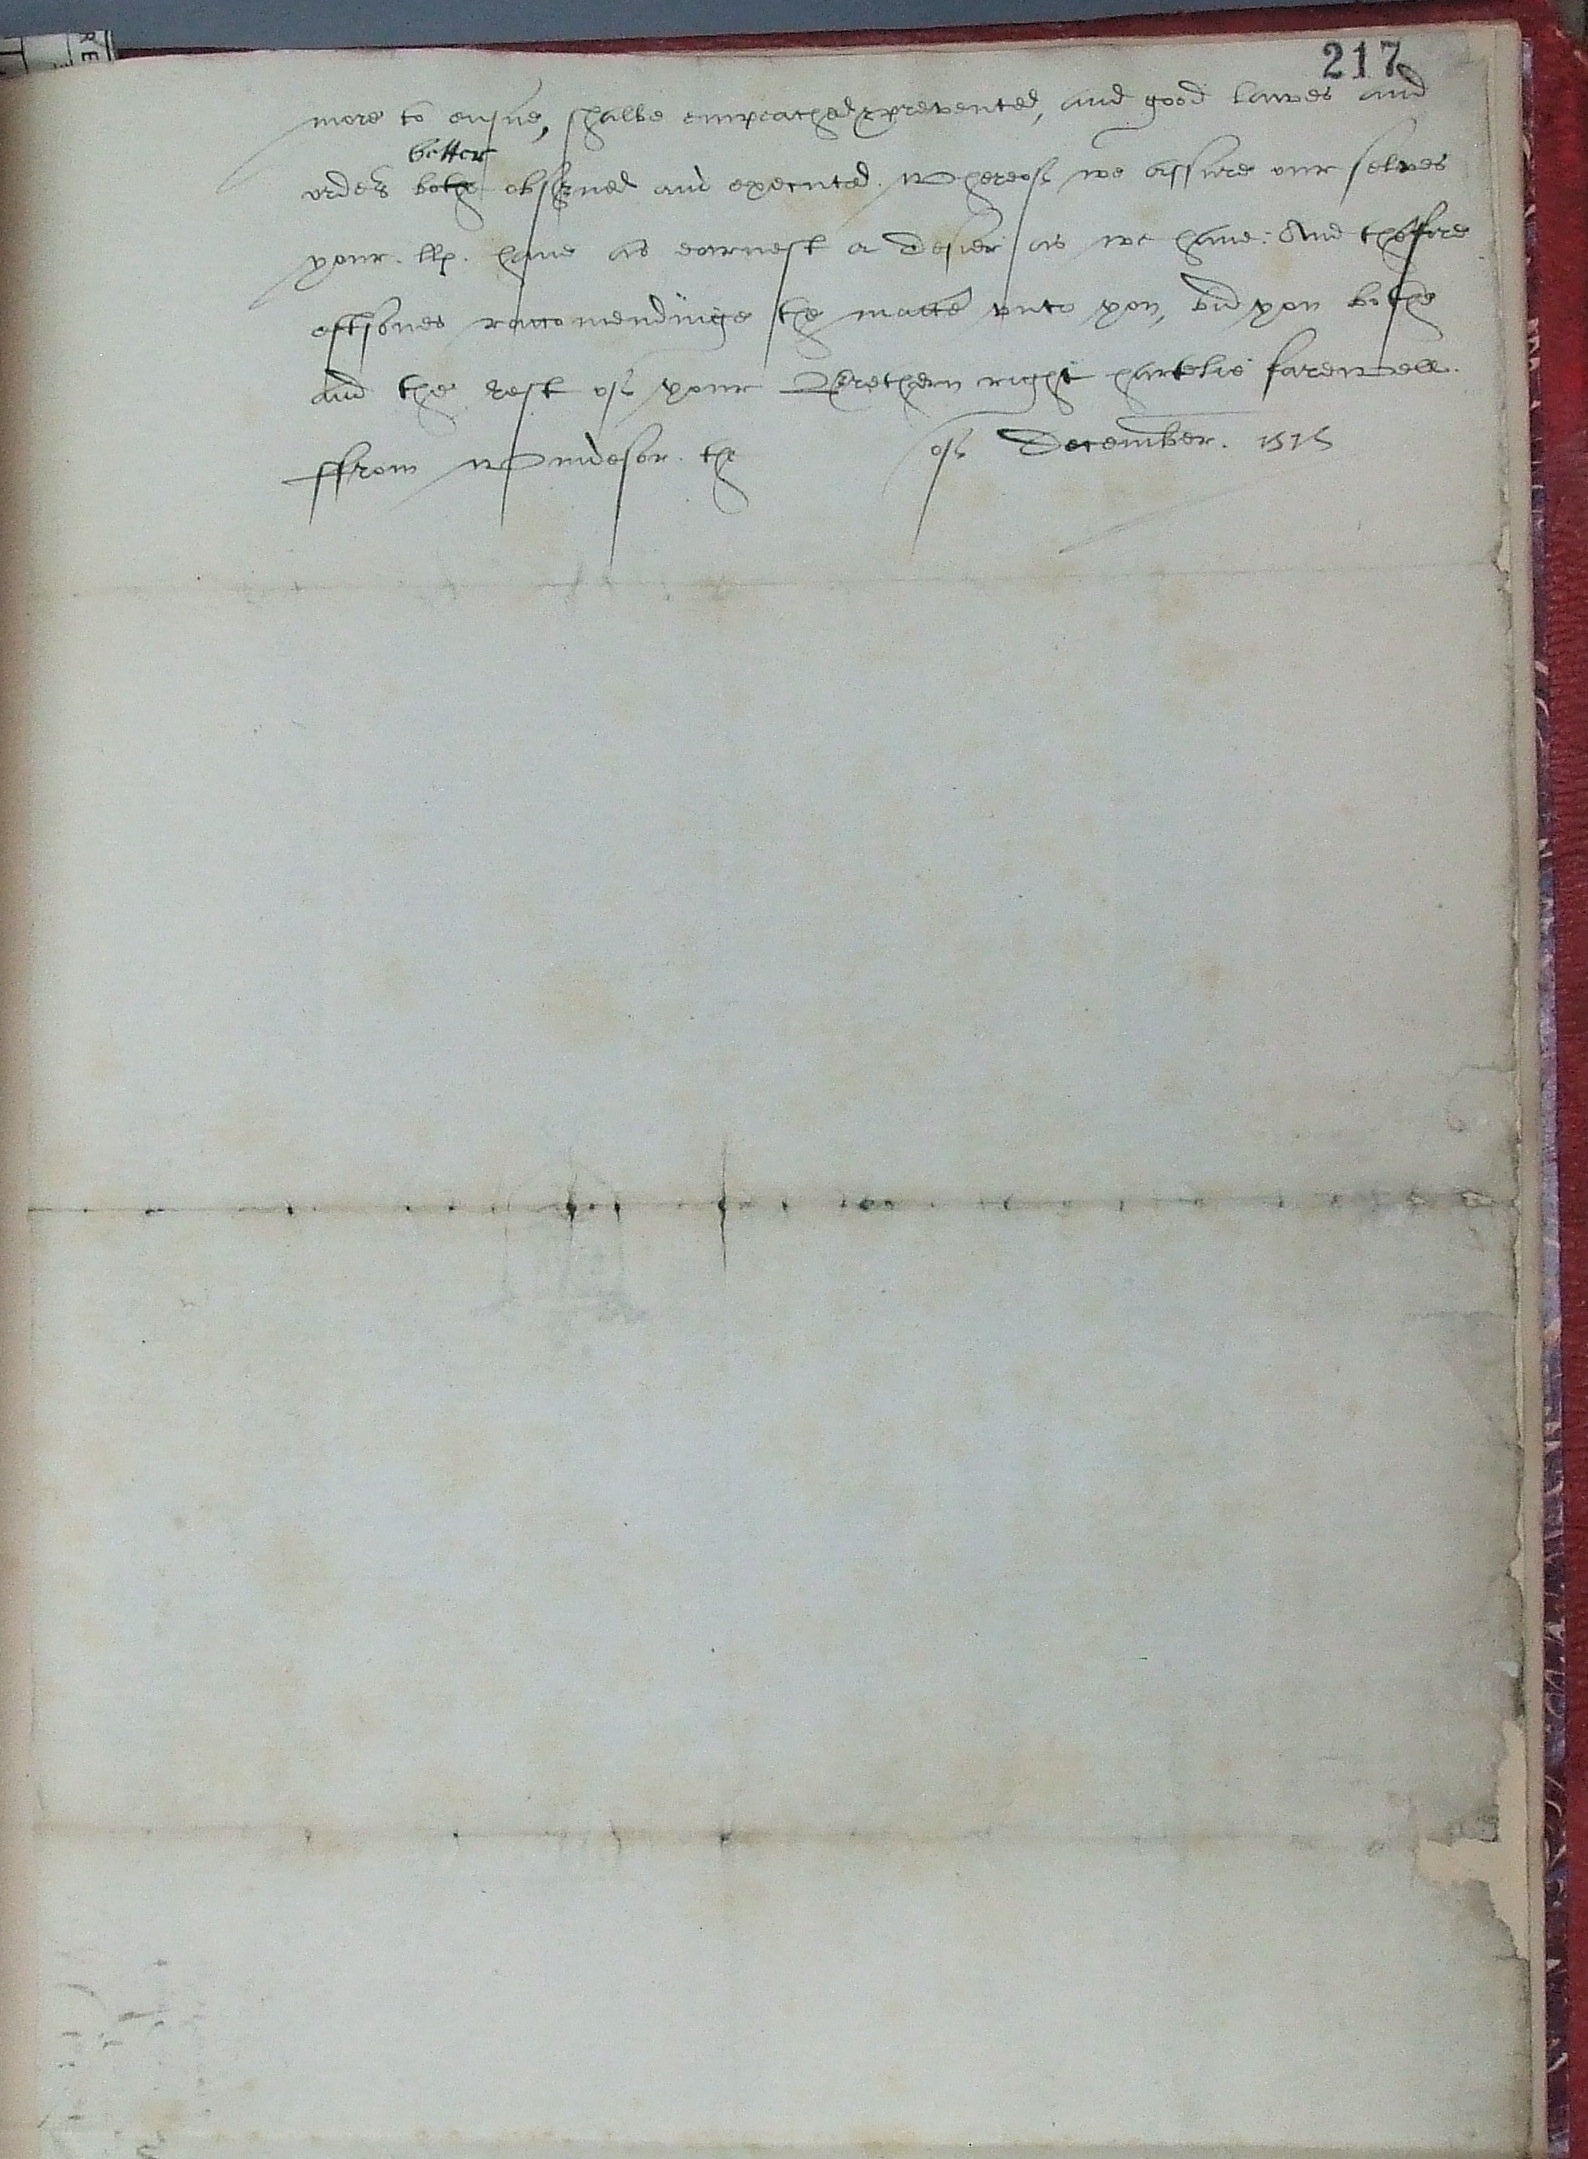 217
more to ensue, shalbe empeached & prevented, and good lawes and
better
orders bothe observed and executed. Whereof we assure our selves
your. llp. haue as earnest a desier as we haue: And therfore
eftsones recommendinge the matter vnto you, bid you bothe
and the rest of your Brethern right hartelie farewell.
ffrom Windesor. the of December. 1575